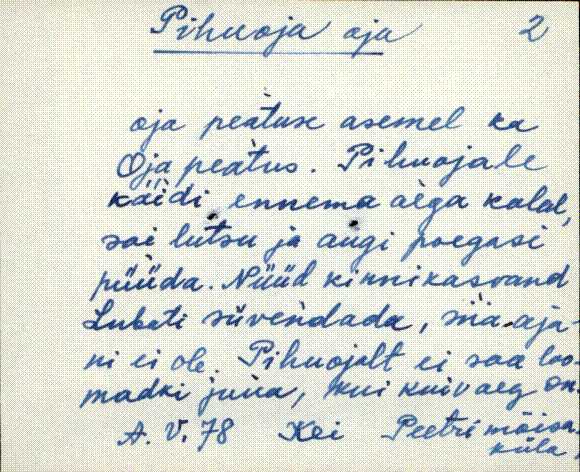 Pihuoja oja 2
oja peatuse asemel ka
Oja peatus. Pihuojale
käidi ennema aega kalal,
sai lutsu ja augi poegasi
püüda. Nüüd kinnikasvand
Lubati süvendada, siia-aja-
ni ei ole. Pihuojalt ei saa loo-
madki juua, kui kuiv aeg on.
A. V. 78 Kei Peetri mõisa-
küla,